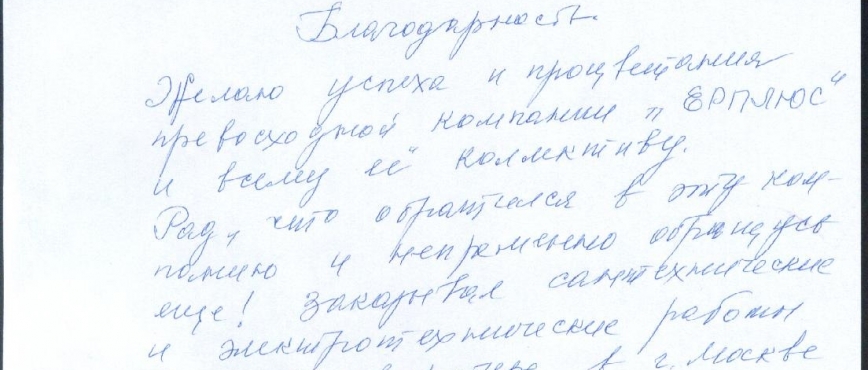 Благодарность.
Желаю успеха и процветания
превосходной компании „ЕРПЛЮС"
и всему её коллективу.
Рад, что обратился в эту ком-
панию и непременно обращусь
еще! Заказывал сантехнические
и электротехнические работы
в г. Москве